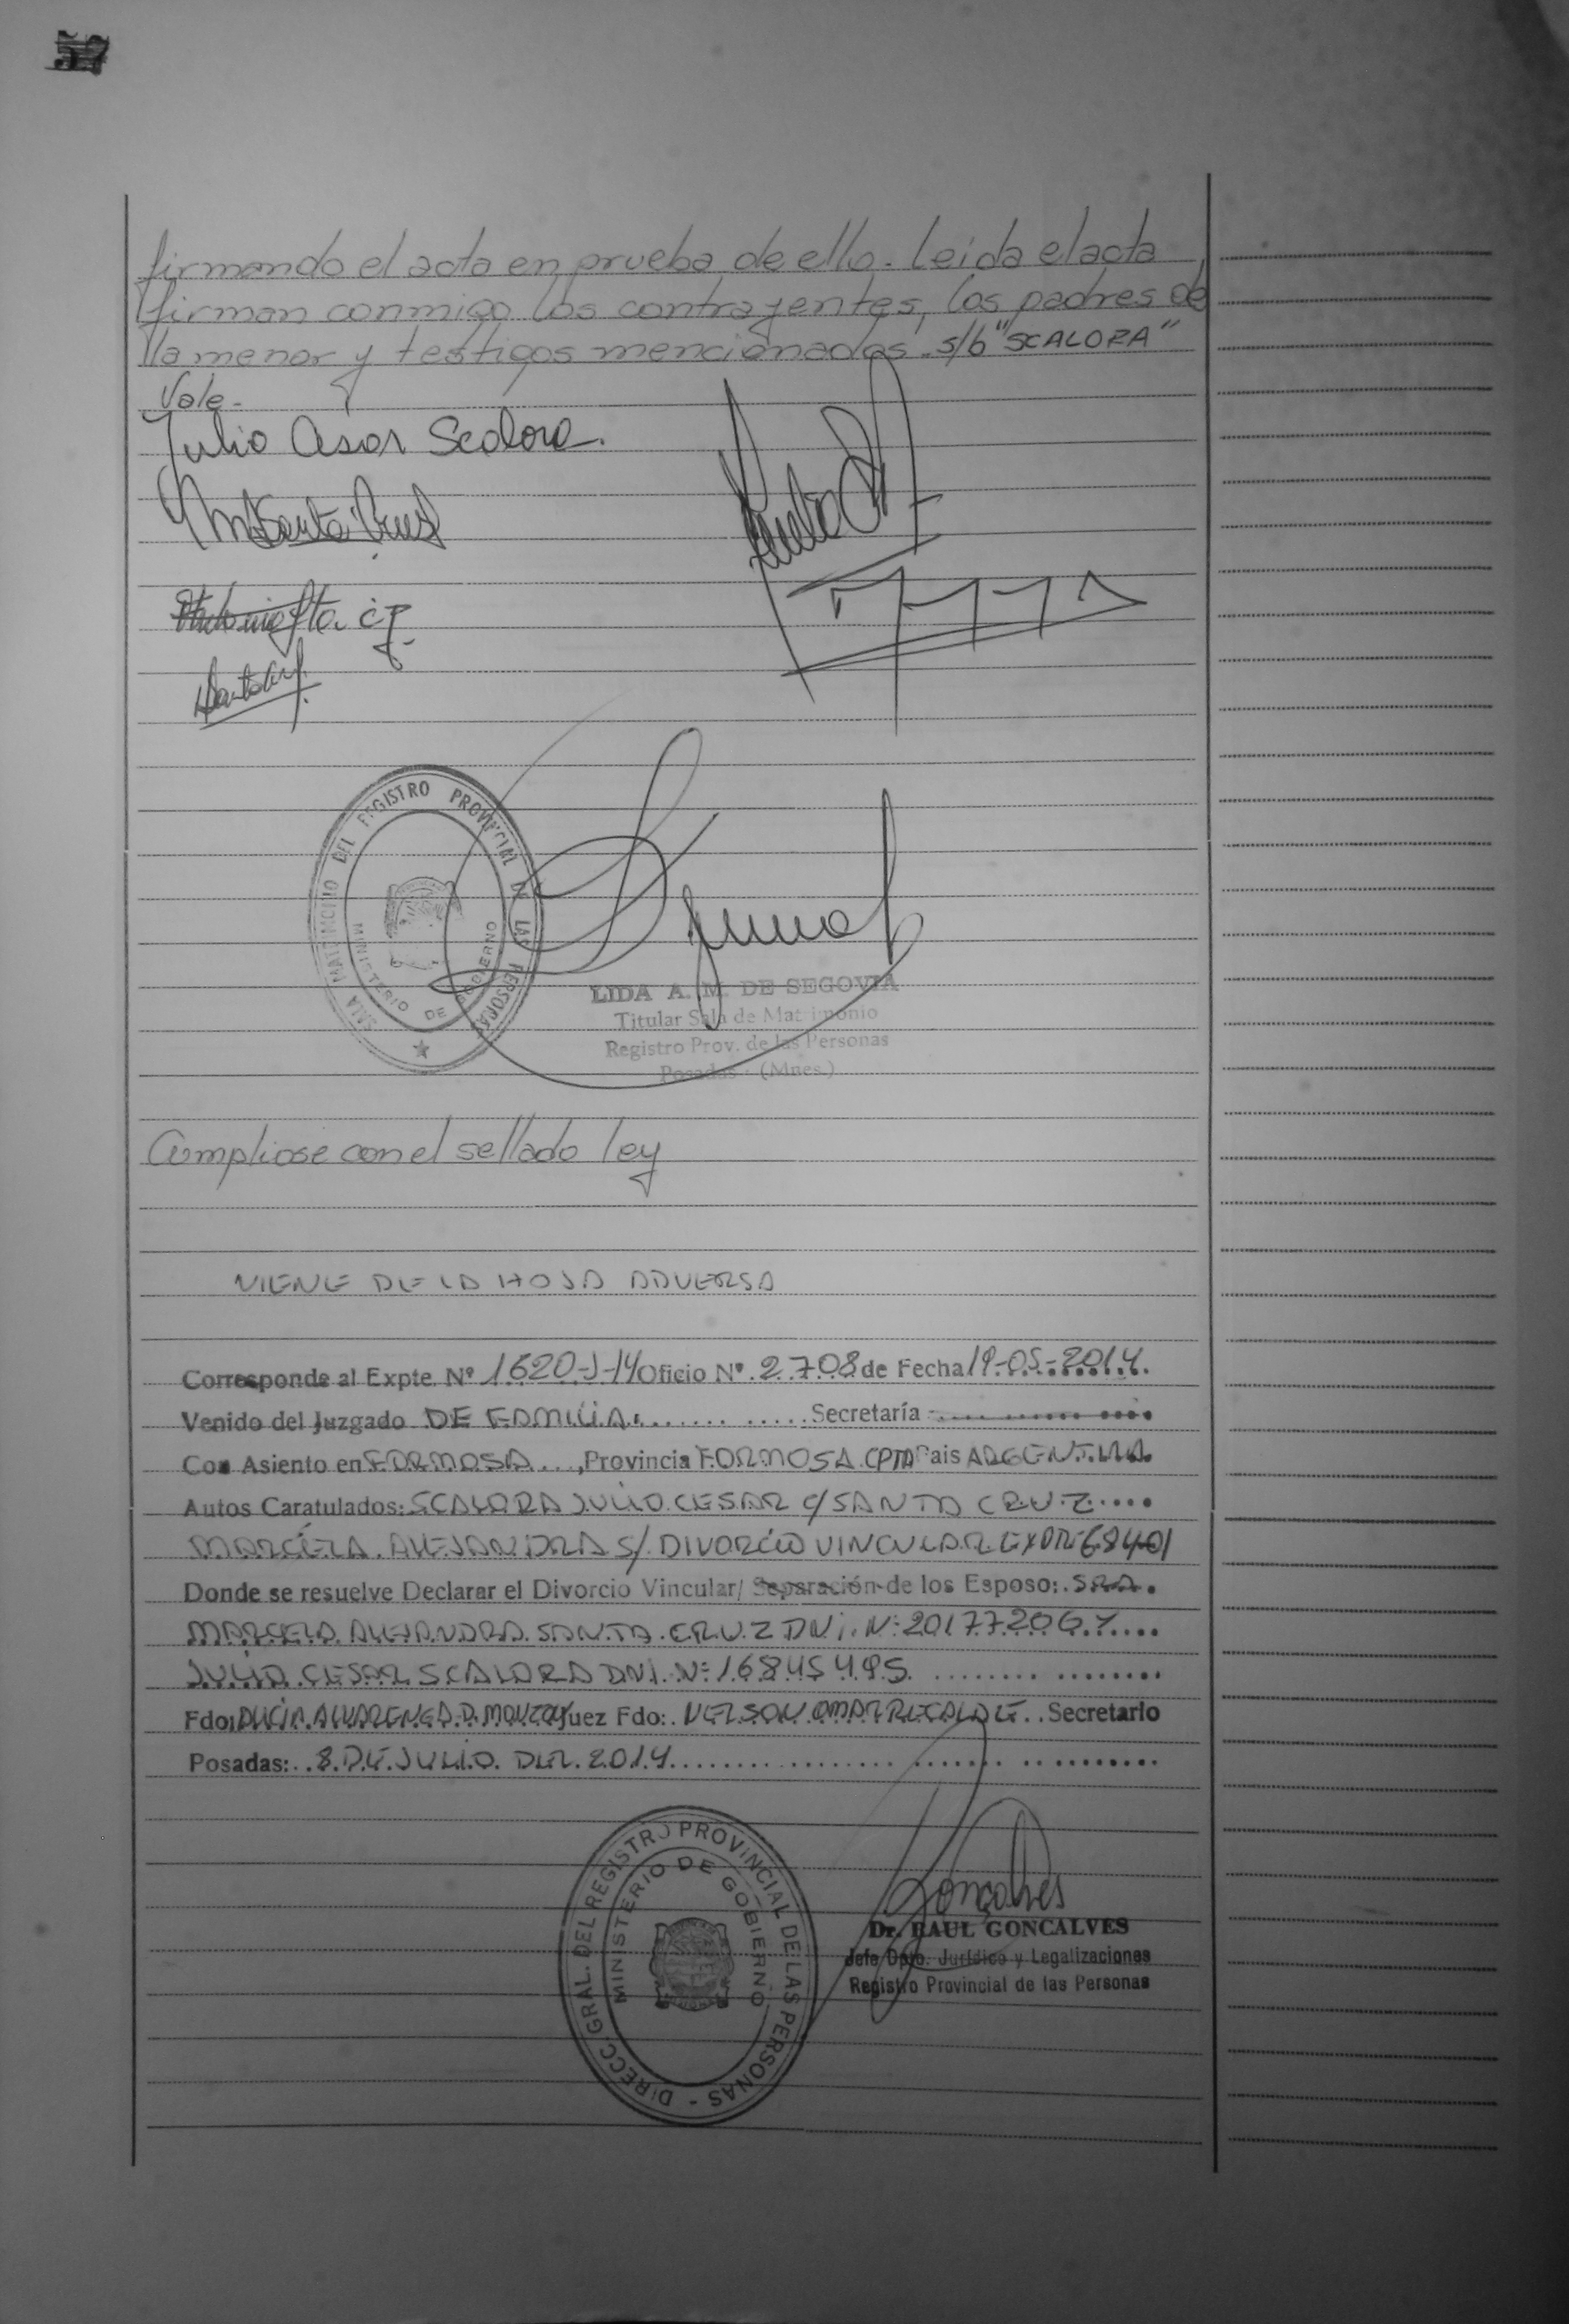 52
firmando el acta en prueba de ello. Leida el acta,
firman conmigo los contrayentes, los padres de
la menor y testigos mencionados. s/b "SCALORA"
Vale-
Julio Cesar Scalora.
SALA MATRIMONIO DEL REGISTRO PROVINCIAL DE LAS PERSONAS
MINISTERIO DE GOBIERNO
LIDA A. M. DE SEGOVIA
Titular Sala de Matrimonio
Registro Prov. de las Personas
Posadas - (Mnes.)
Cumpliose con el sellado ley
VIENE DE LA HOJA ADVERSA
Corresponde al Expte. Nº 1620-J-14 Oficio Nº. 2708 de Fecha 19-05-2014.
Venido del Juzgado DE FAMILIA. Secretaría
Con Asiento en FORMOSA, Provincia FORMOSA CPTAL Pais ARGENTINA
Autos Caratulados: SCALORA JULIO CESAR C/ SANTA CRUZ
MARCELA ALEJANDRA S/ DIVORCIO VINCULAR EXPTE 684-01
Donde se resuelve Declarar el Divorcio Vincular/ Separación de los Esposo: SRA.
MARCELA ALEJANDRA SANTA CRUZ DNI. Nº
JULIO CESAR SCALORA DNI. Nº 16845495
Fdo: ALICIA ALVARENGA D. Juez Fdo: NELSON OMAR RECALDE Secretario
Posadas: 8 DE JULIO DEL 2014
DIRECC. GRAL. DEL REGISTRO PROVINCIAL DE LAS PERSONAS -
MINISTERIO DE GOBIERNO
Goncalves
Dr. RAUL GONCALVES
Jefe Dpto. Jurídico y Legalizaciones
Registro Provincial de las Personas